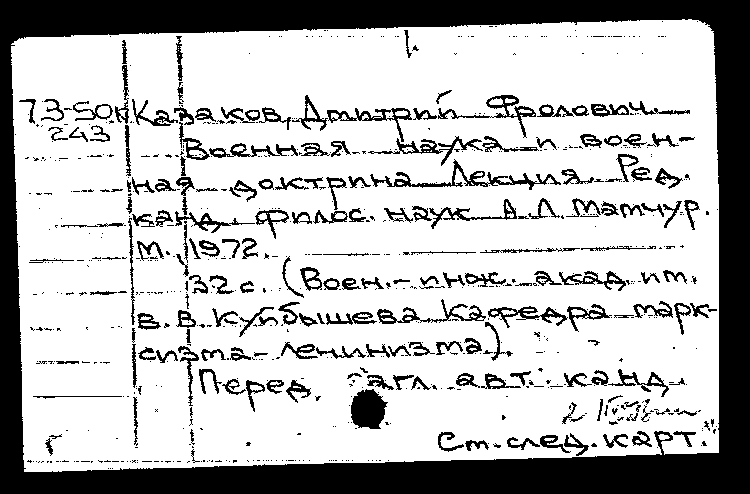 1.
73-50к Казаков, Дмитрий Фролович.
243
Военная наука и воен-
ная доктрина Лекция. Ред.
канд. филос. наук А.Л. Матчур.
М., 1972.
32 с. (Воен.-инж. акад. им.
В.В. Куйбышева Кафедра марк-
сизма-ленинизма).
Перед загл. авт.: канд.
г
См. след. карт.